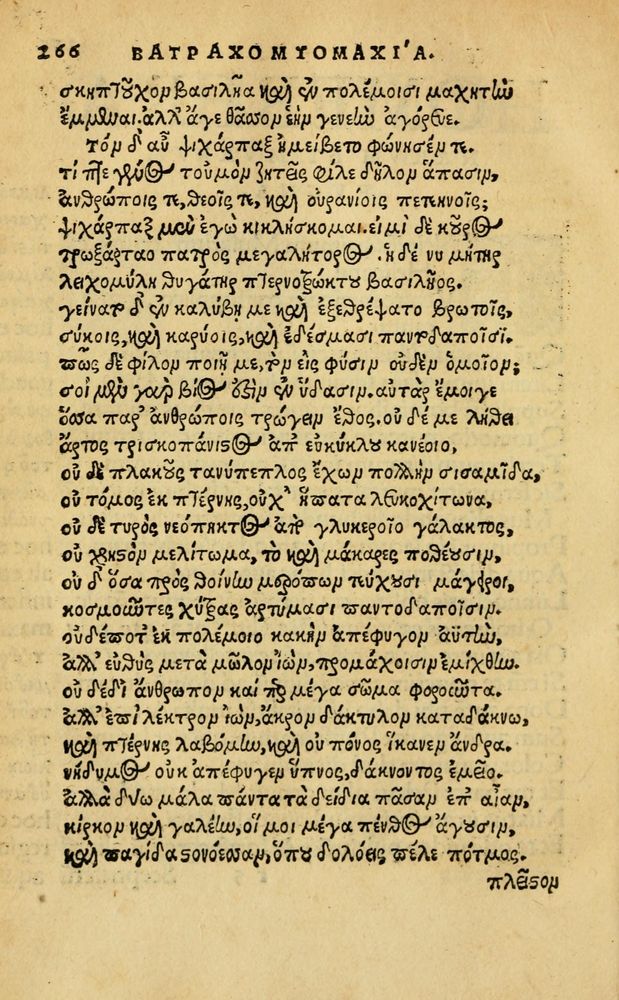 266 ΒΑΤΡΑΧΟΜΥΟΜΑΧΙ´Α.
σκηπτοῦχον βασιλῆα καὶ ἐν πολέμοισι μαχητὴν
ἔμμεναι. ἀλλ' ἄγε θᾶσσον ἑὴν γενεὴν ἀγόρευε.
Τὸν δ' αὖ ψιχάρπαξ ἠμείβετο φώνησέν τε.
τίπτε γένος τοὐμὸν ζητεῖς φίλε δῆλον ἅπασιν,
ἀνθρώποις τε, θεοῖς τε, καὶ οὐρανίοις πετεηνοῖς;
ψιχάρπαξ μὲν ἐγὼ κικλήσκομαι. εἰμὶ δὲ κοῦρος
τρωξάρταο πατρὸς μεγαλήτορος. ἡ δέ νυ μήτηρ
λειχομύλη θυγάτηρ πτερνοτρώκτου βασιλῆος.
γείνατο δ' ἐν καλύβῃ με καὶ ἐξεθρέψατο βρωτοῖς,
σύκοις, καὶ καρύοις, καὶ ἐδέσμασι παντοδαποῖσι.
πῶς δὲ φίλον ποιῇ με, τὸν εἰς φύσιν οὐδὲν ὁμοῖον;
σοὶ μὲν γὰρ βίος ἐστὶν ἐν ὕδασιν. αὐτὰρ ἔμοιγε
ὅσσα παρ' ἀνθρώποις τρώγειν ἔθος. οὐδέ με λήθει
ἄρτος τρισκοπάνιστος ἀπ' εὐκύκλου κανέοιο,
οὐ δὲ πλακοῦς τανύπεπλος ἔχων πολλὴν σισαμῖδα,
οὐ τόμος ἐκ πτέρνης, οὐχ' ἥπατα λευκοχίτωνα,
οὐ δὲ τυρὸς νεόπηκτος ἀπὸ γλυκεροῖο γάλακτος,
οὐ χρηστὸν μελίτωμα, τὸ καὶ μάκαρες ποθέουσιν,
οὐ δ' ὅσα πρὸς θοίνην μερόπων τεύχουσι μάγειροι,
κοσμοῦντες χύτρας ἀρτύμασι παντοδαποῖσιν.
οὐδέποτ' ἐκ πολέμοιο κακὴν ἀπέφυγον ἀϋτὴν,
ἀλλ' εὐθὺς μετὰ μῶλον ἰὼν, προμάχοισιν ἐμίχθην.
οὐ δέδι' ἄνθρωπον καί περ μέγα σῶμα φοροῦντα.
ἀλλ' ἐπὶ λέκτρον ἰὼν, ἄκρον δάκτυλον καταδάκνω,
καὶ πτέρνης λαβόμην, καὶ οὐ πόνος ἵκανεν ἄνδρα.
νήδυμος οὐκ ἀπέφυγεν ὕπνος, δάκνοντος ἐμεῖο.
ἀλλὰ δύω μάλα πάντα τὰ δείδια πᾶσαν ἐπ' αἶαν,
κίρκον καὶ γαλέην, οἵ μοι μέγα πένθος ἄγουσιν,
καὶ παγίδα στονόεσσαν, ὅπου δολόεις πέλε πότμος.
πλεῖστον